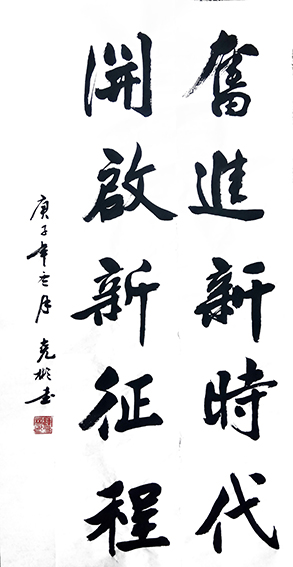 奮進新時代
開啟新征程
庚子年冬月 堯彬書